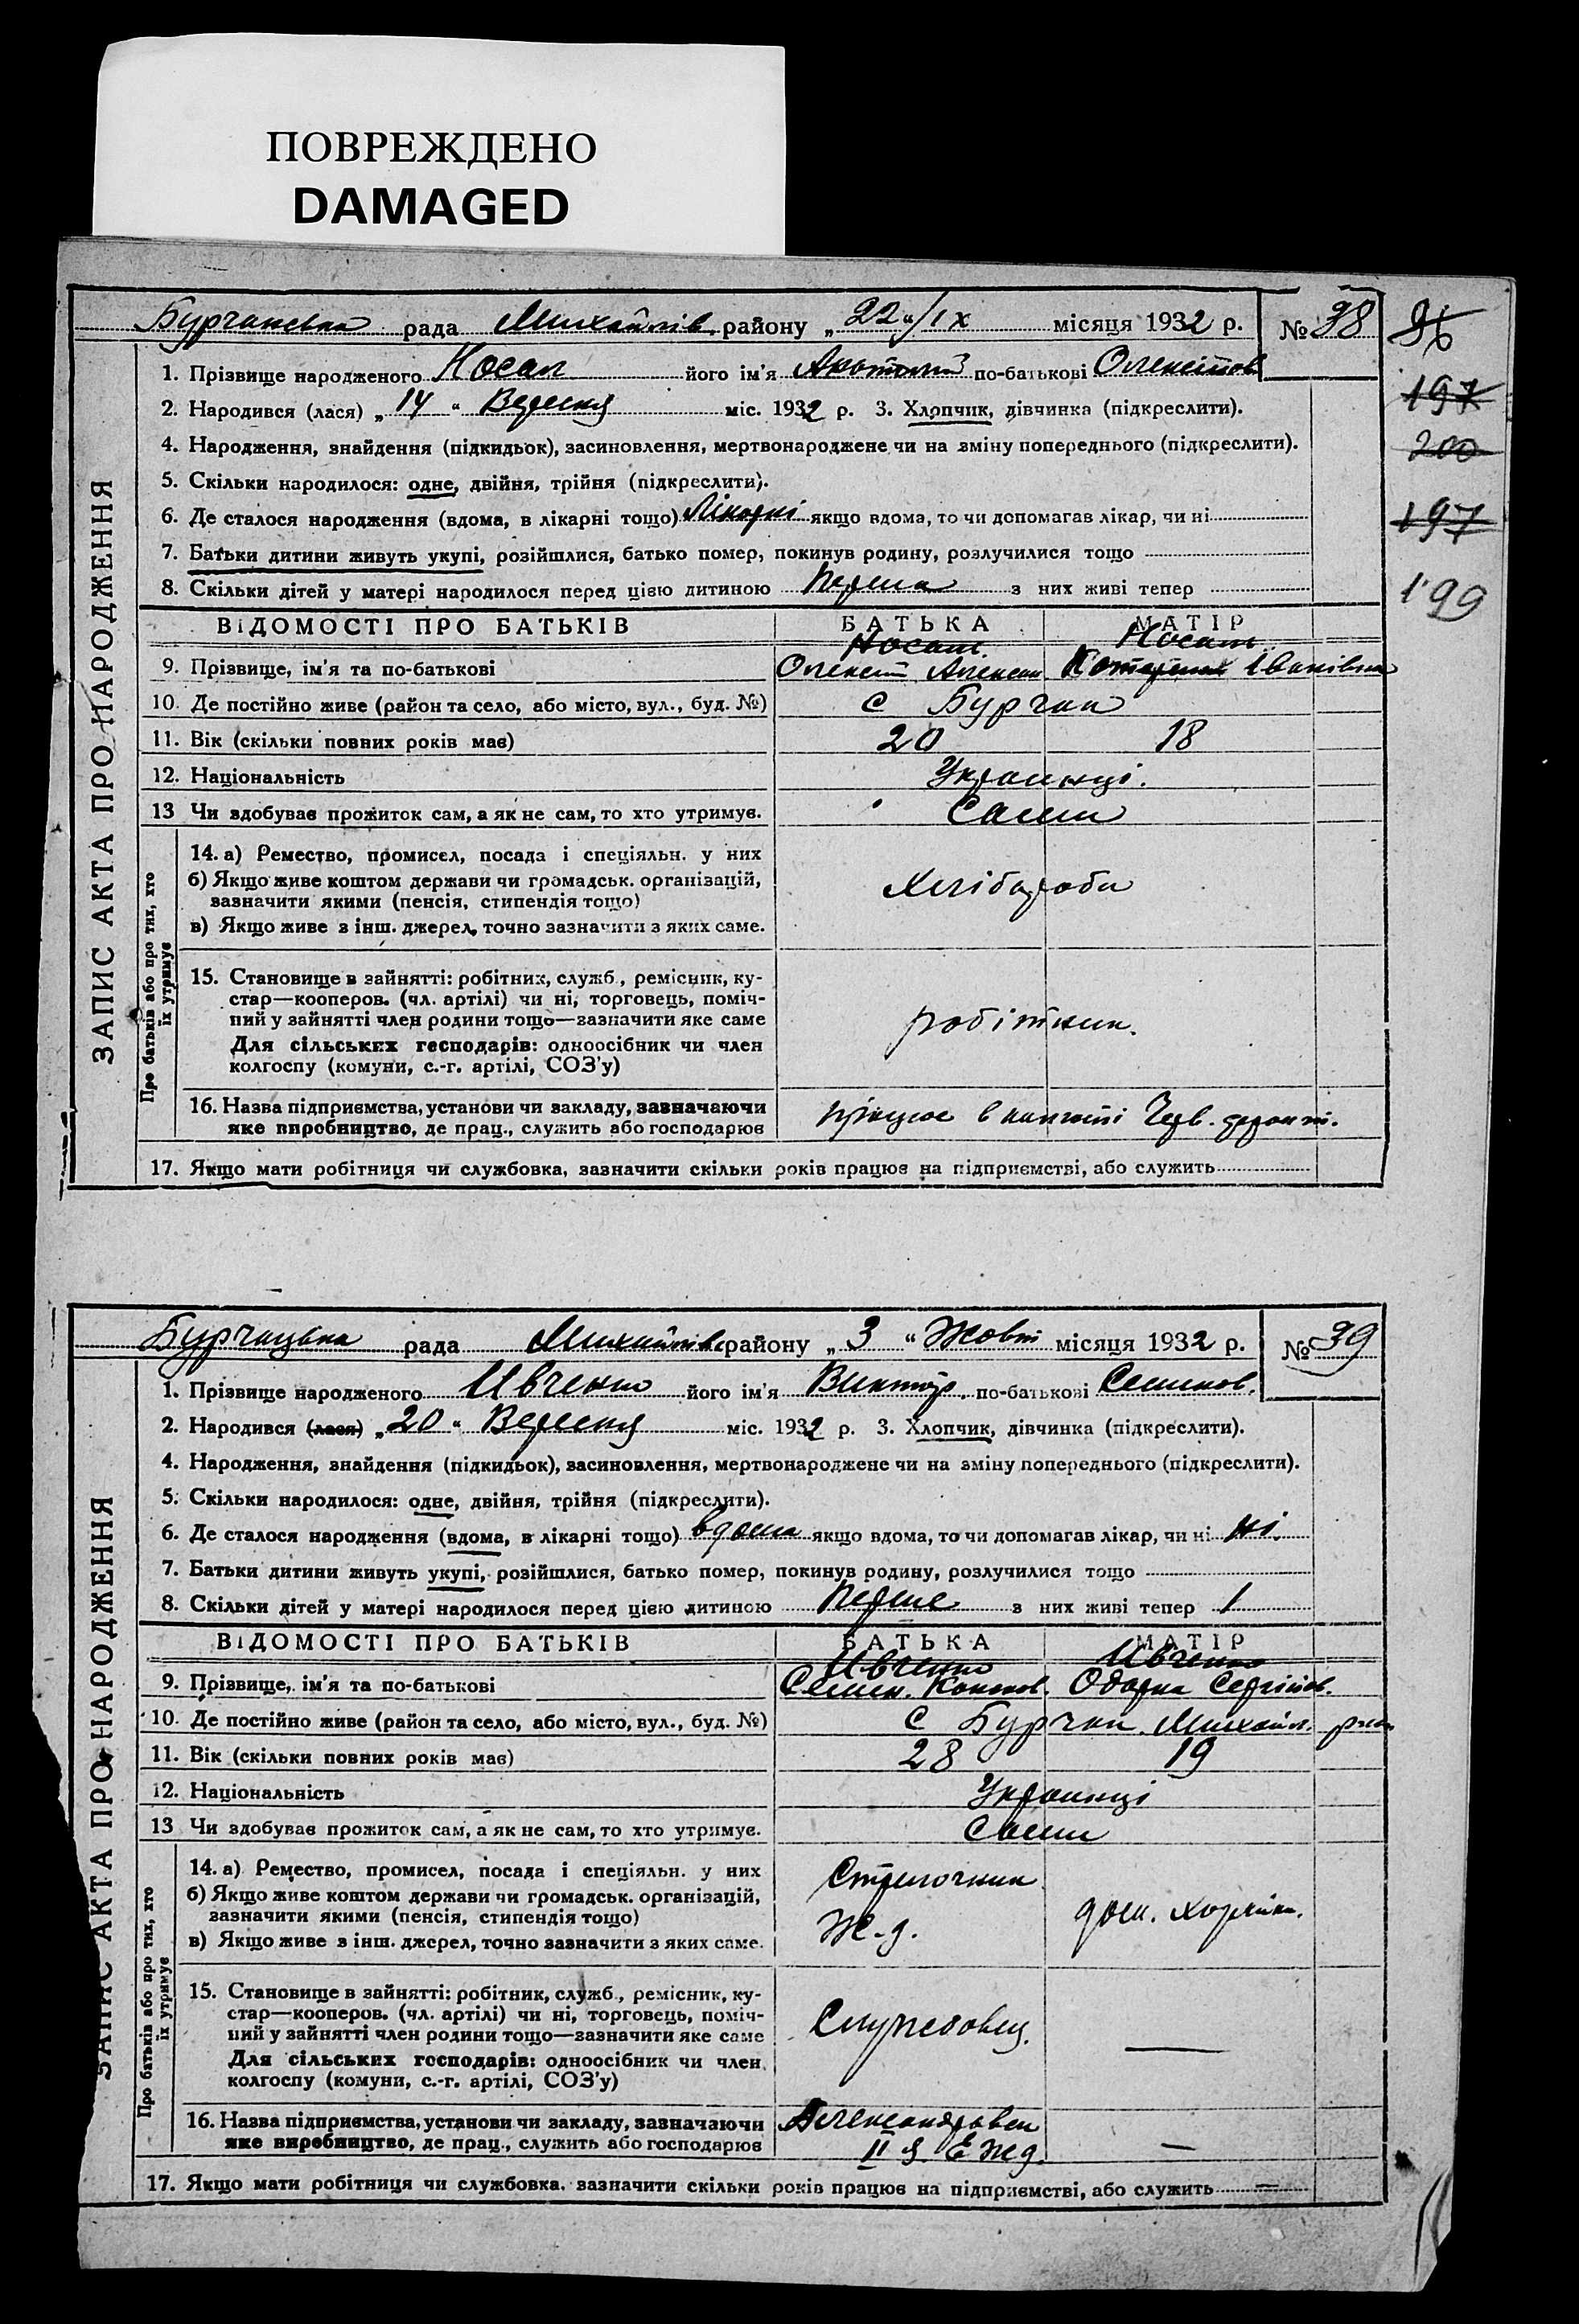 ПОВРЕЖДЕНО
DAMAGED
рада Михайлів. району „22“/ІХ місяця 1932 р. № 38
96
1. Прізвище народженого Носал його ім'я Анатолій по-батькові Олексійов
197
2. Народився (лася) „14“ Вересня міс. 1932 р. 3. Хлопчик, дівчинка (підкреслити).
200
4. Народження, знайдення (підкидьок), засиновлення, мертвонароджене чи на зміну попереднього (підкреслити).
5. Скільки народилося: одне, двійня, трійня (підкреслити).
6. Де сталося народження (вдома, в лікарні тощо) Лікарні якщо вдома, то чи допомагав лікар, чи ні
197
7. Батьки дитини живуть укупі, розійшлися, батько помер, покинув родину, розлучилися тощо
8. Скільки дітей у матері народилося перед цією дитиною перша з них живі тепер
199
ЗАПИС АКТА ПРО НАРОДЖЕННЯ
ВІДОМОСТІ ПРО БАТЬКІВ БАТЬКА МАТІР
9. Прізвище, ім'я та по-батькові Олексій Катерина Іванівна
10. Де постійно живе (район та село, або місто, вул., буд. №) с Бурчак
11. Вік (скільки повних років має) 20 18
12. Національність Українці.
13 Чи здобуває прожиток сам, а як не сам, то хто утримує. Сами
Про батьків або про тих, хто їх утримує
14. а) Ремество, промисел, посада і спеціяльн. у них
б) Якщо живе коштом держави чи громадськ. організацій,
зазначити якими (пенсія, стипендія тощо) Хлібороби
в) Якщо живе з інш. джерел, точно зазначити з яких саме.
15. Становище в зайнятті: робітник, служб., ремісник, ку-
стар—кооперов. (чл. артілі) чи ні, торговець, поміч-
ний у зайнятті член родини тощо—зазначити яке саме робітник.
Для сільських господарів: одноосібник чи член
колгоспу (комуни, с.-г. артілі, СОЗ'у)
16. Назва підприємства, установи чи закладу, зазначаючи працює в Черв.
яке виробництво, де прац., служить або господарює
17. Якщо мати робітниця чи службовка, зазначити скільки років працює на підприємстві, або служить
Бурчацька рада Михайлів району „3“ Жовт місяця 1932 р. № 39
1. Прізвище народженого Ивченко його ім'я Виктор. по-батькові Семенов.
2. Народився (лася) „20“ Вересня міс. 1932 р. 3. Хлопчик, дівчинка (підкреслити).
4. Народження, знайдення (підкидьок), засиновлення, мертвонароджене чи на зміну попереднього (підкреслити).
5. Скільки народилося: одне, двійня, трійня (підкреслити).
6. Де сталося народження (вдома, в лікарні тощо) вдома якщо вдома, то чи допомагав лікар, чи ні ні.
7. Батьки дитини живуть укупі, розійшлися, батько помер, покинув родину, розлучилися тощо
8. Скільки дітей у матері народилося перед цією дитиною перше з них живі тепер 1
ЗАПИС АКТА ПРО НАРОДЖЕННЯ
ВІДОМОСТІ ПРО БАТЬКІВ БАТЬКА МАТІР
Ивченко Ивченко
9. Прізвище, ім'я та по-батькові Семен. Конон. Одарка Сергіїов.
10. Де постійно живе (район та село, або місто, вул., буд. №) с Бурчак Михайл. рай
11. Вік (скільки повних років має) 28 19
12. Національність Українці
13 Чи здобуває прожиток сам, а як не сам, то хто утримує. Сами
Про батьків або про тих, хто їх утримує
14. а) Ремество, промисел, посада і спеціяльн. у них Стрелочник
б) Якщо живе коштом держави чи громадськ. організацій,
зазначити якими (пенсія, стипендія тощо) Ж-д. дом.
в) Якщо живе з інш. джерел, точно зазначити з яких саме.
15. Становище в зайнятті: робітник, служб., ремісник, ку-
стар—кооперов. (чл. артілі) чи ні, торговець, поміч-
ний у зайнятті член родини тощо—зазначити яке саме Службовец. —
Для сільських господарів: одноосібник чи член
колгоспу (комуни, с.-г. артілі, СОЗ'у)
16. Назва підприємства, установи чи закладу, зазначаючи
яке виробництво, де прац., служить або господарює —
17. Якщо мати робітниця чи службовка, зазначити скільки років працює на підприємстві, або служить —